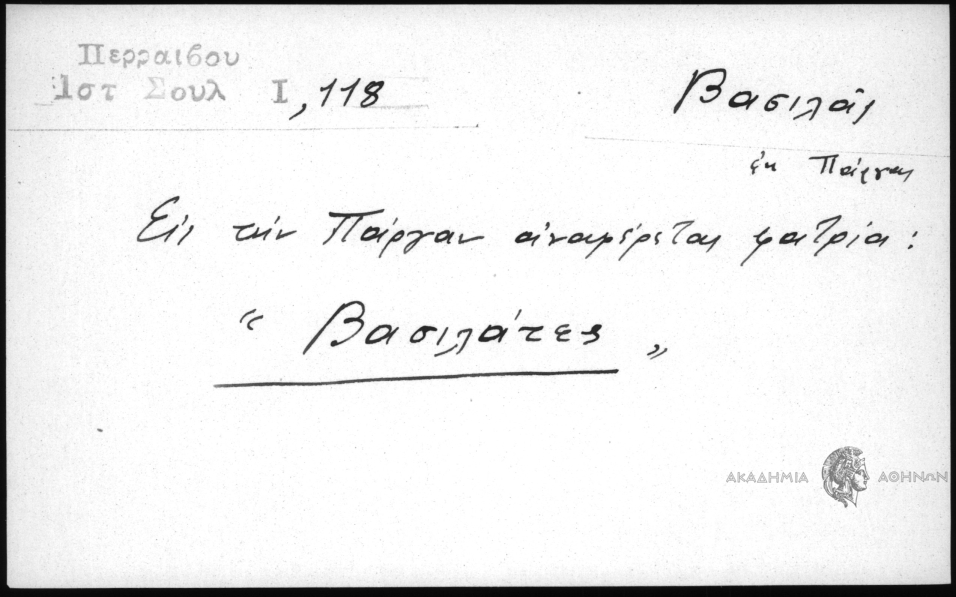 Περραιβου
Ιστ Σουλ Ι, 118
Βασιλᾶς
ἐκ Πάργας
Εἰς τὴν Πάργαν ἀναφέρεται φατρία :
“ Βασιλάτες „
ΑΚΑΔΗΜΙΑ ΑΘΗΝΩΝ